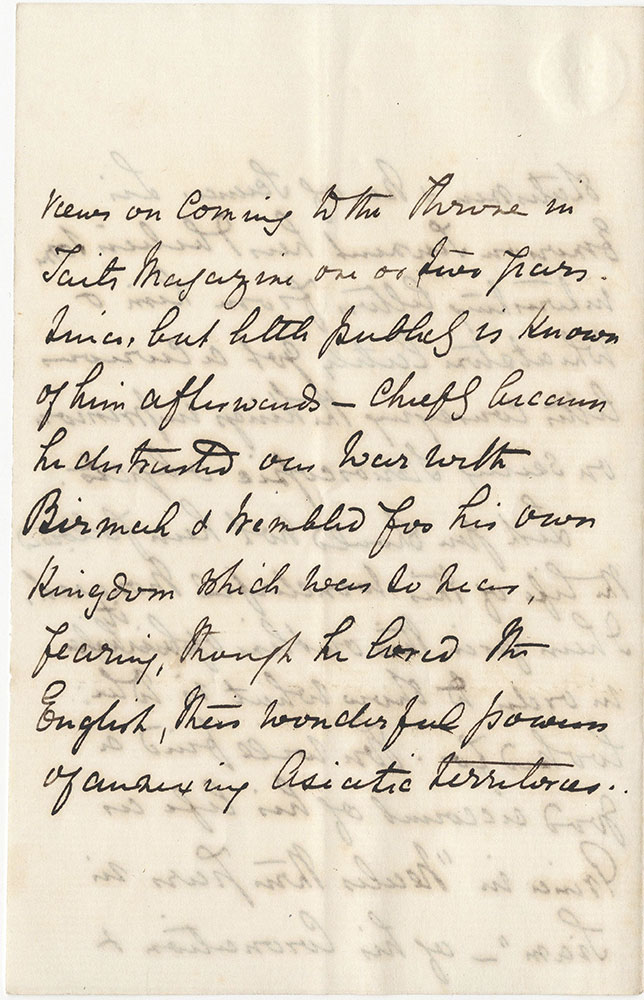 views on coming to the Throne in
Taits Magazine one or two years.
since, but little publicly is known
of him afterwards – chiefly because
he distrusted our War with
Birmah & trembled for his own
Kingdom which was so near,
fearing, though he loved the
English, their wonderful powers
of annexing Asiatic territories..